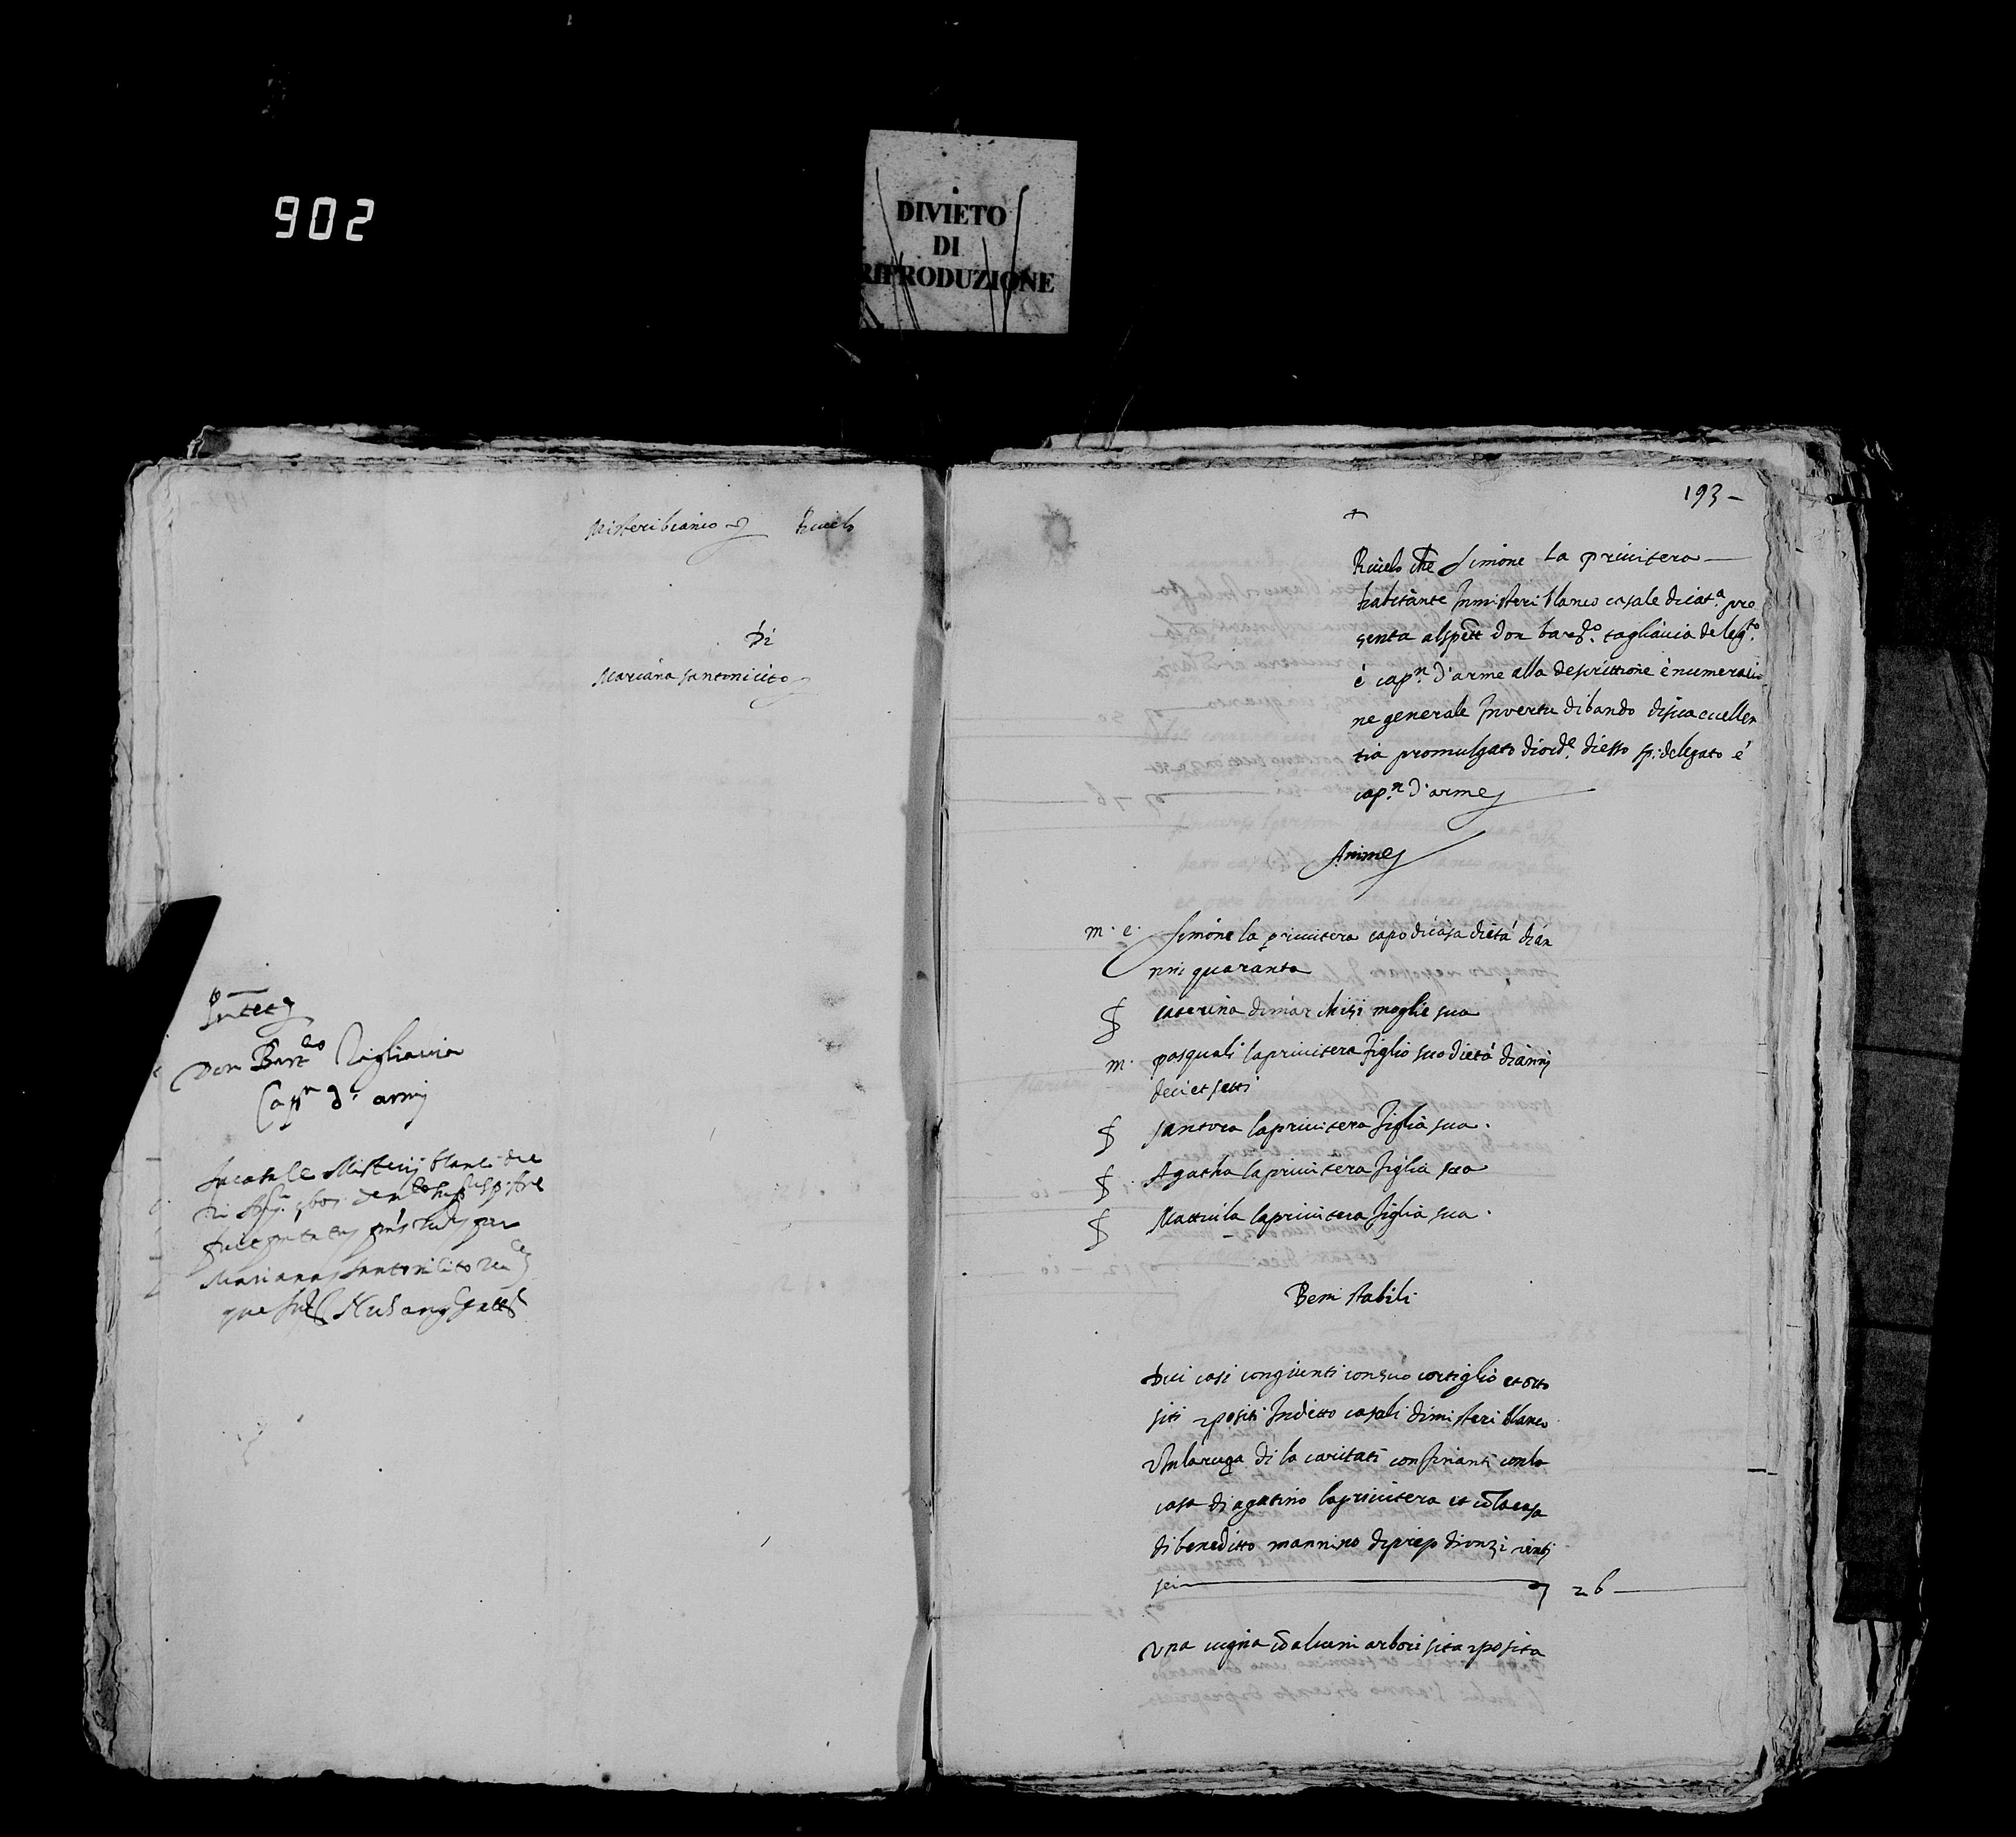 902
DIVIETO
DI
RIPRODUZIONE
Misteribianco Rivelo
Di
Mariana Santonicito
Don Bart.eo Tagliavia
Cap.n d'armi
In casale Misterij blanci die
Mariana Santonicito
193
Rivelo che Simone la privitera
habitante In misteri blanco casale di cat.a pre
senta al spett. don bar.do tagliavia deleg.to
è cap.n d'arme alla descrittione è numeratio
ne generale In vertu di bando di sua eccellen
tia promulgato di ord.e di esso sp. delegato è
cap.n d'arme
Anime
m. c. Simone la privitera capo di casa di età di an
nni quaranta
f caterina di marchisi moglie sua
m. pasquali la privitera figlio suo di età di anni
deci et setti
f santora la privitera figlia sua.
f Agatha la privitera figlia sua
f Mattuila la privitera figlia sua.
Beni stabili
Dui casi congiunti con suo cortiglio et orto
siti et positi In detto casali di misteri blanco
In la ruga di la caritati confinanti con la
casa di agatino la privitera et con la casa
di beneditto mannino di prezo di onzi venti
sei 26
Una vigna con alcuni arbori sita et posita